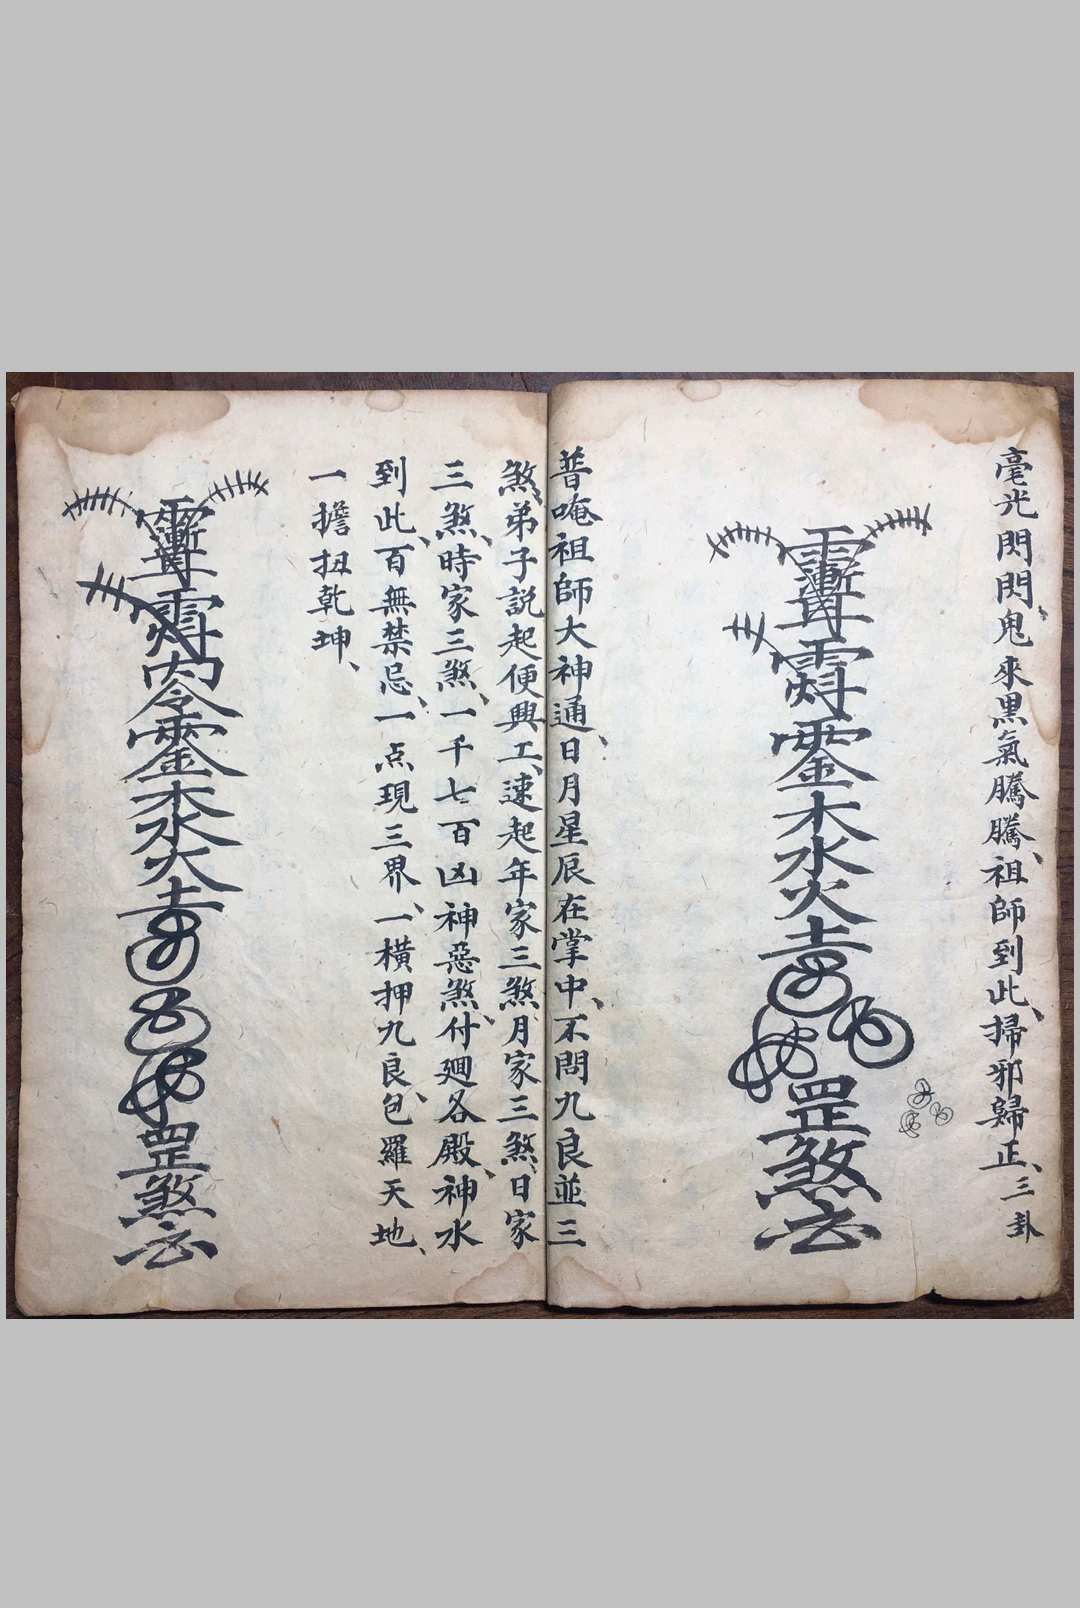 毫光閃閃、鬼來黑氣騰騰、祖師到此、掃邪歸正、三卦
金木水火土
罡煞
普唵祖師大神通、日月星辰在掌中、不問九良並三
煞、弟子説起便興工、速起年家三煞、月家三煞、日家
三煞、時家三煞、一千七百凶神惡煞、付廻各殿、神水
到此、百無禁忌、一点現三界、一橫押九良、包羅天地、
一擔扭乾坤、
金木水火土
罡煞